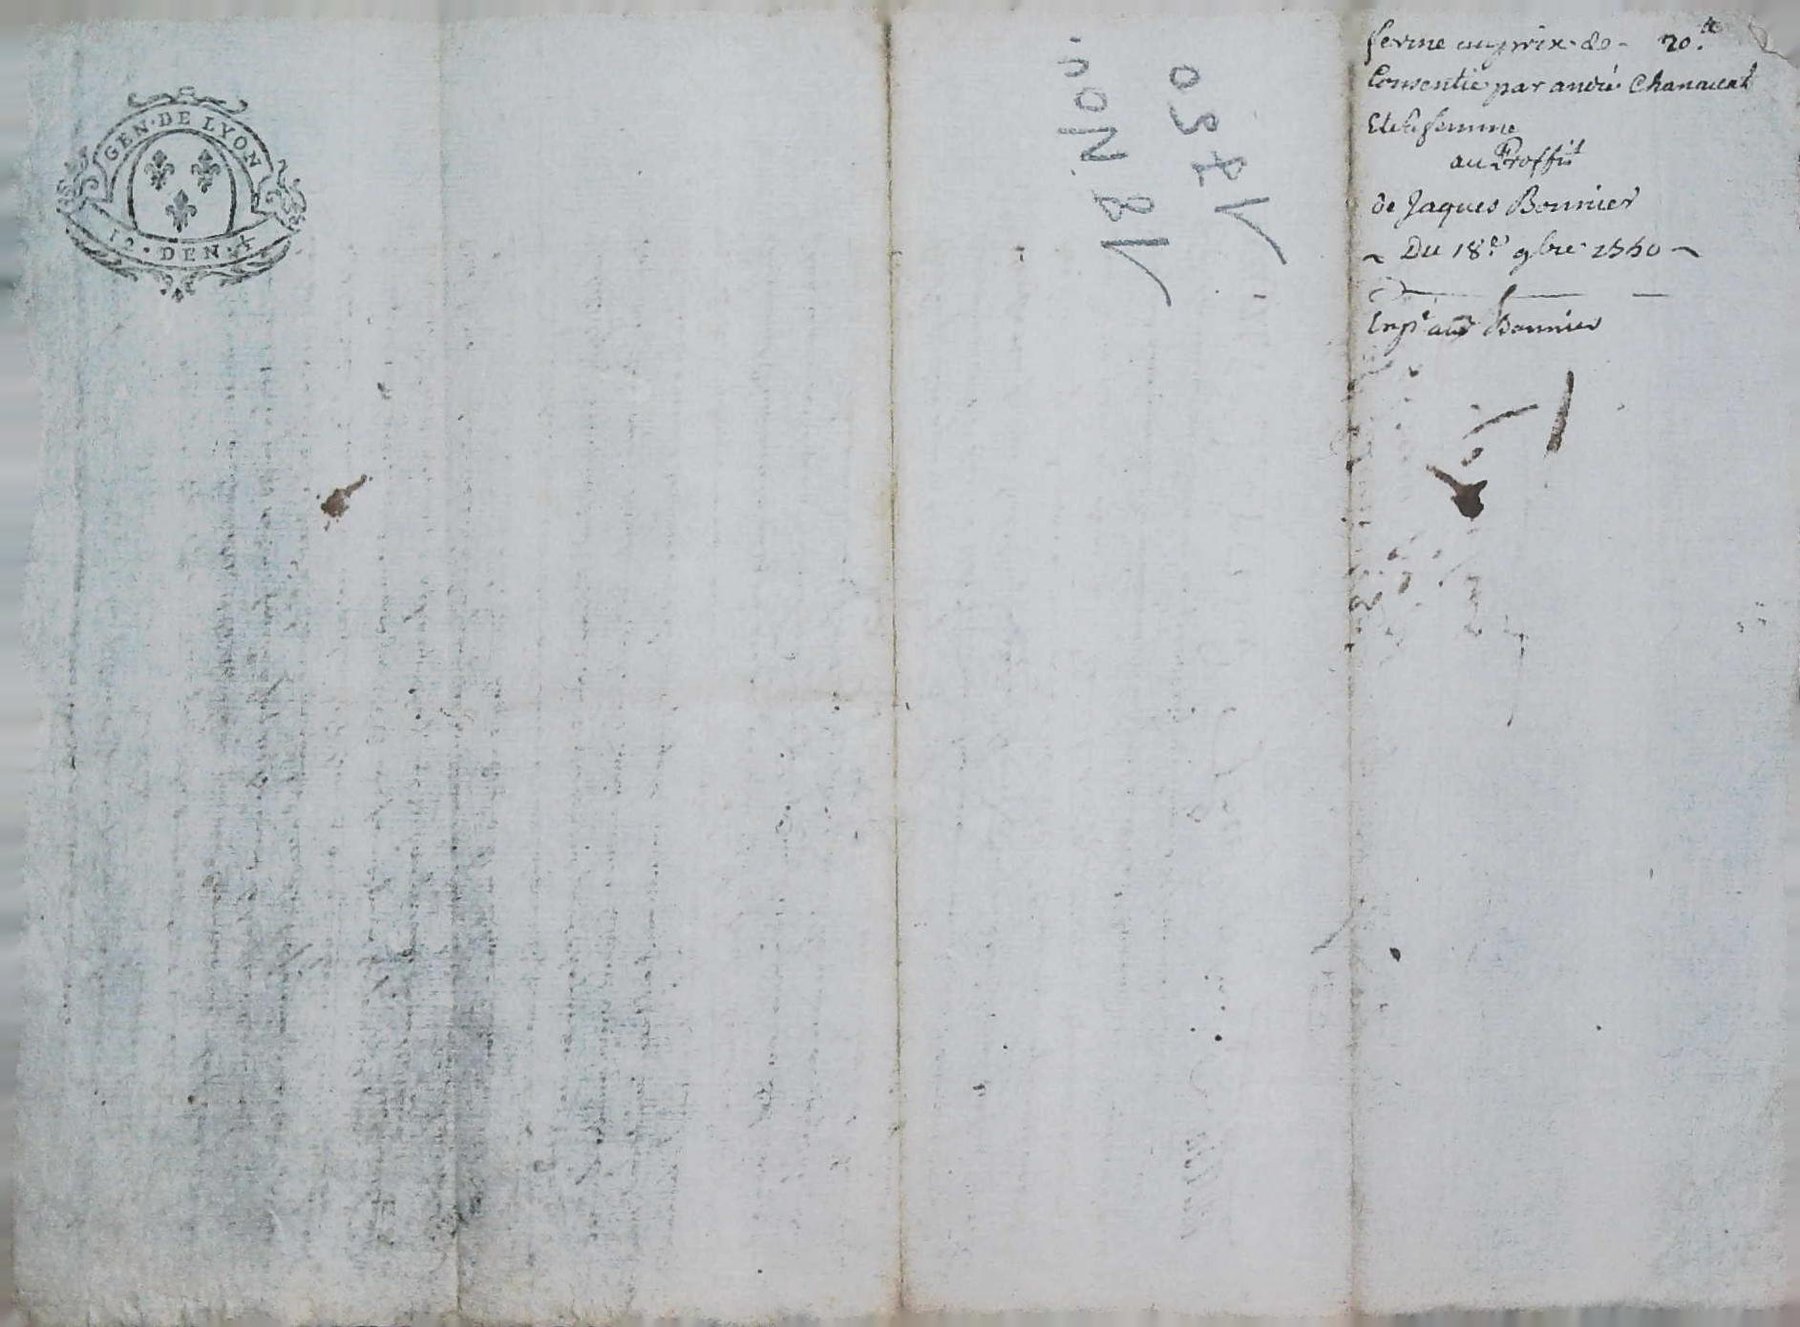 GEN·DE LYON
12·DEN·
18 Nov.
1750
ferme au prix de - 70.tt
Consentie par andré Chanavat
Et sa femme
au Proffit
de Jaques Bonnier
~ Du 18.e 9bre 1750 ~
Exp.e aud Bonnier